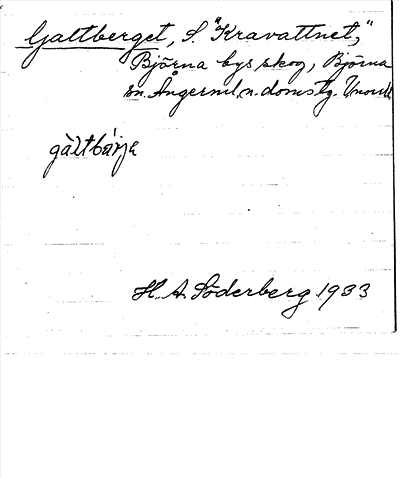 Galtberget, S. "Kravattnet,"
Björna bys skog, Björna
sn. Ångerml. n. doms tg.
gàltbárja
H. A. Söderberg 1933